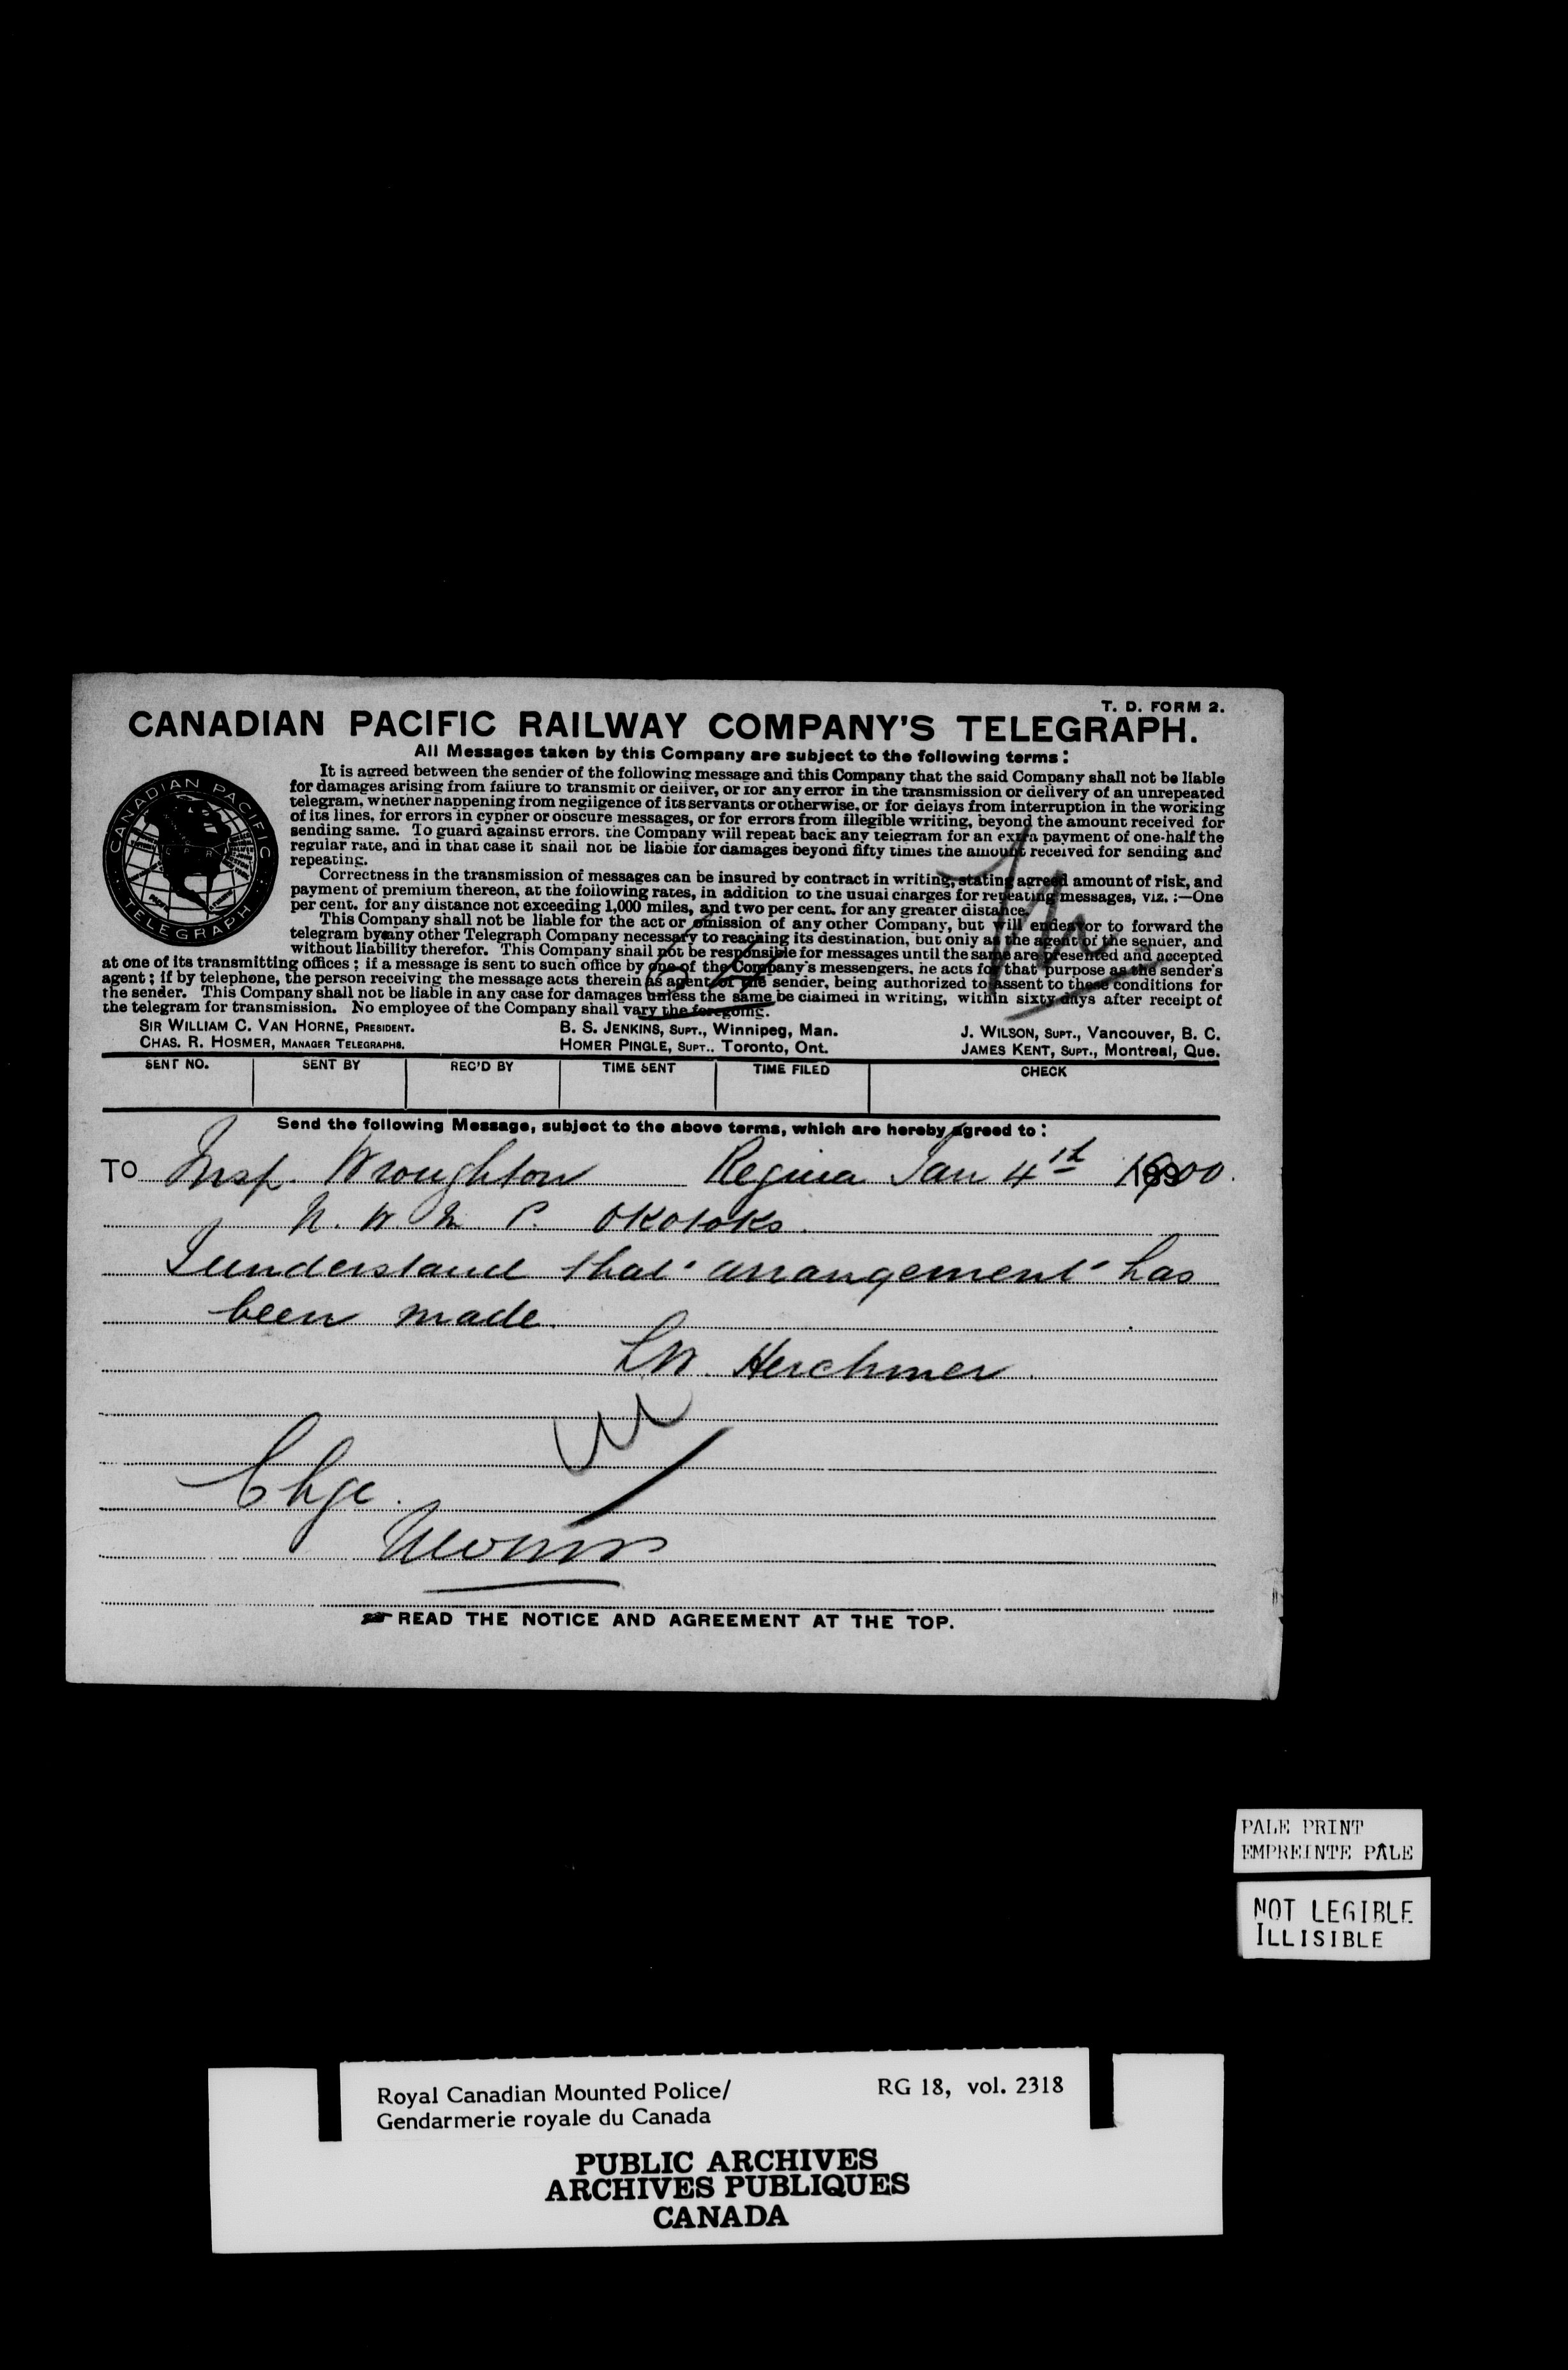 T. D. FORM 2.
CANADIAN PACIFIC RAILWAY COMPANY'S TELEGRAPH.
All Messages taken by this Company are subject to the following terms:
It is agreed between the sender of the following message and this Company that the said Company shall not be liable
for damages arising from failure to transmit or deliver, or for any error in the transmission or delivery of an unrepeated
telegram, whether happening from negligence of its servants or otherwise, or for delays from interruption in the working
of its lines, for errors in cypher or obscure messages, or for errors from illegible writing, beyond the amount received for
sending same. To guard against errors, the Company will repeat back any telegram for an extra payment of one-half the
regular rate, and in that case it shall not be liable for damages beyond fifty times the amount received for sending and
repeating.
Correctness in the transmission of messages can be insured by contract in writing, stating agreed amount of risk, and
payment of premium thereon, at the following rates, in addition to the usual charges for repeating messages, viz. :—One
per cent. for any distance not exceeding 1,000 miles, and two per cent. for any greater distance.
This Company shall not be liable for the act or omission of any other Company, but will endeavor to forward the
telegram by any other Telegraph Company necessary to reaching its destination, but only as the agent of the sender, and
without liability therefor. This Company shall not be responsible for messages until the same are presented and accepted
at one of its transmitting offices ; if a message is sent to such office by one of the Company's messengers, he acts for that purpose as the sender's
agent ; if by telephone, the person receiving the message acts therein as agent of the sender, being authorized to assent to these conditions for
the sender. This Company shall not be liable in any case for damages unless the same be claimed in writing, within sixty days after receipt of
the telegram for transmission. No employee of the Company shall vary the foregoing.
CANADIAN PACIFIC TELEGRAPH
SIR WILLIAM C. VAN HORNE, PRESIDENT. B. S. JENKINS, SUPT., Winnipeg, Man. J. WILSON, SUPT., Vancouver, B. C.
CHAS. R. HOSMER, MANAGER TELEGRAPHS. HOMER PINGLE, SUPT., Toronto, Ont. JAMES KENT, SUPT., Montreal, Que.
SENT NO. SENT BY REC'D BY TIME SENT TIME FILED CHECK
Send the following Message, subject to the above terms, which are hereby agreed to:
TO Insp. Wroughton Regina Jan 4th 1900.
N. W. M. P. Okotoks.
I understand that arrangement has
been made.
LW. Herchmer.
Chge.
READ THE NOTICE AND AGREEMENT AT THE TOP.
PALE PRINT
EMPREINTE PÂLE
NOT LEGIBLE
ILLISIBLE
Royal Canadian Mounted Police/ RG 18, vol. 2318
Gendarmerie royale du Canada
PUBLIC ARCHIVES
ARCHIVES PUBLIQUES
CANADA